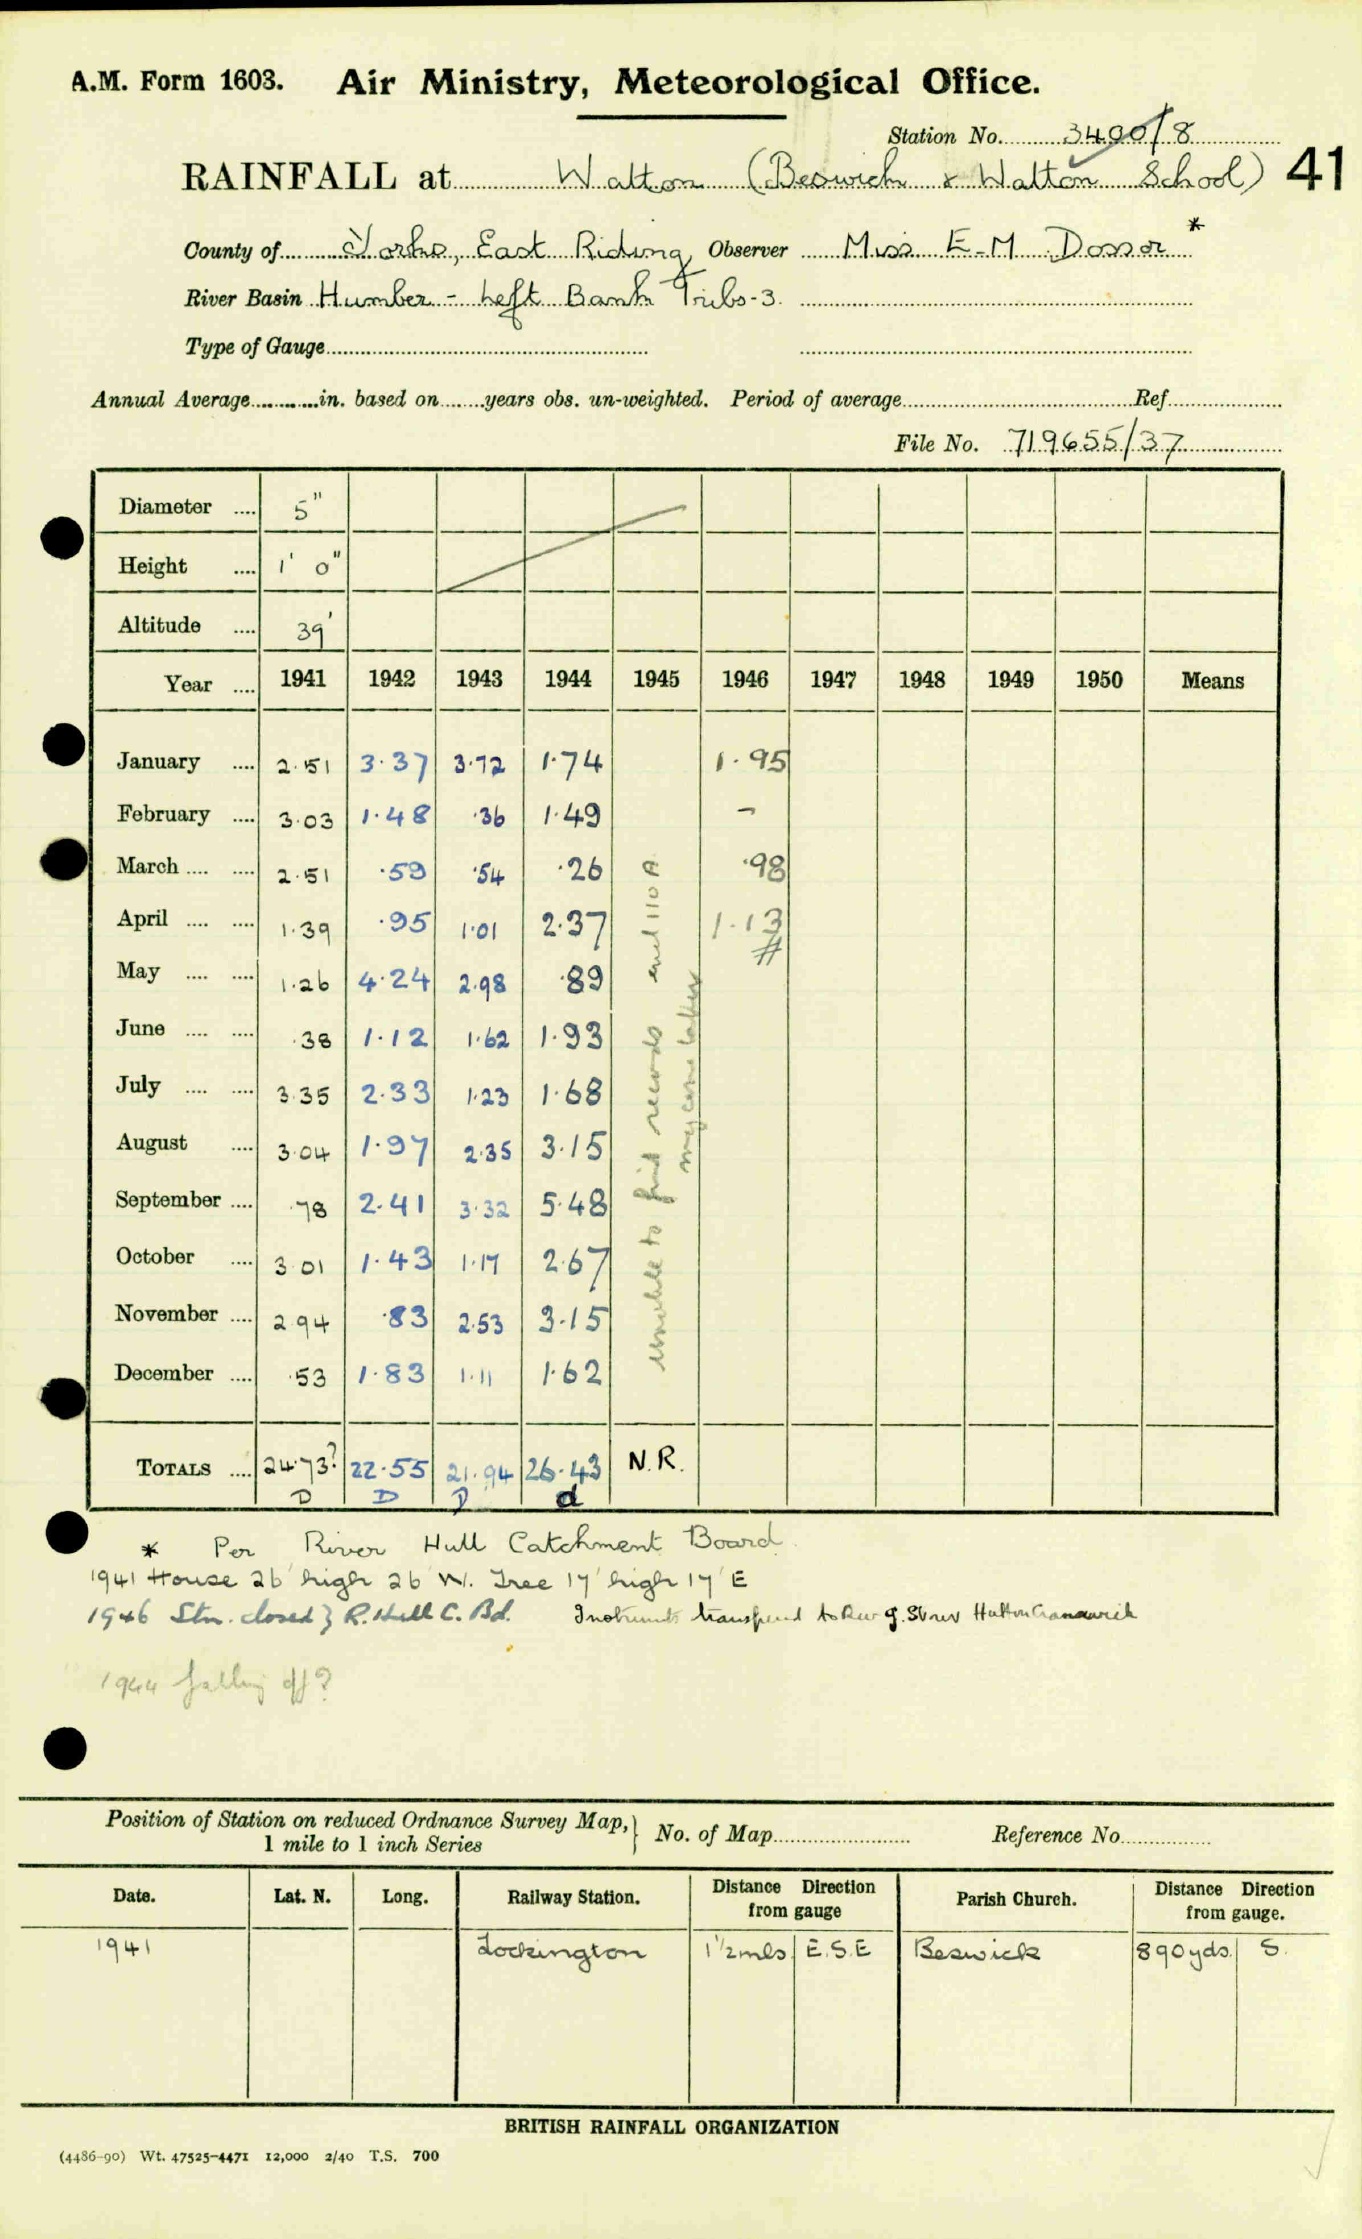 A.M. Form 1603. Air Ministry, Meteorological Office.
Station No. 3400/8
RAINFALL at Watton (Beswick & Watton School) 41
County of Yorks, East Riding Observer Miss E-M Dossor *
River Basin Humber - Left Bank Tribs-3.
Type of Gauge
Annual Average in. based on years obs. un-weighted. Period of average Ref
File No. 719655/37
Diameter 5"
Height 1' 0"
Altitude 39'
Year 1941 1942 1943 1944 1945 1946 1947 1948 1949 1950 Means
January 2.51 3.37 3.72 1.74 1.95
February 3.03 1.48 .36 1.49 -
March 2.51 .59 .54 .26 .98
April 1.39 .95 1.01 2.37 1.13
#
May 1.26 4.24 2.98 .89
June .38 1.12 1.62 1.93
July 3.35 2.33 1.23 1.68
August 3.04 1.97 2.35 3.15
September .78 2.41 3.32 5.48
October 3.01 1.43 1.17 2.67
November 2.94 .83 2.53 3.15
December .53 1.83 1.11 1.62
unable to find records
TOTALS 24.73? 22.55 21.94 26.43 N.R.
D D D d
* Per River Hull Catchment Board.
1941 House 26' high 26' W. Tree 17' high 17' E
1946 Stn. closed } R. Hull C. Bd. Instruments to Rev J. Hutton Cranswick
1944 falling off?
Position of Station on reduced Ordnance Survey Map, } No. of Map Reference No
1 mile to 1 inch Series
Date. Lat. N. Long. Railway Station. Distance Direction from gauge Parish Church. Distance Direction from gauge.
1941 Lockington 1 1/2 mls E.S.E Beswick 890 yds. S.
BRITISH RAINFALL ORGANIZATION
(4486-90) Wt. 47525-4471 12,000 2/40 T.S. 700